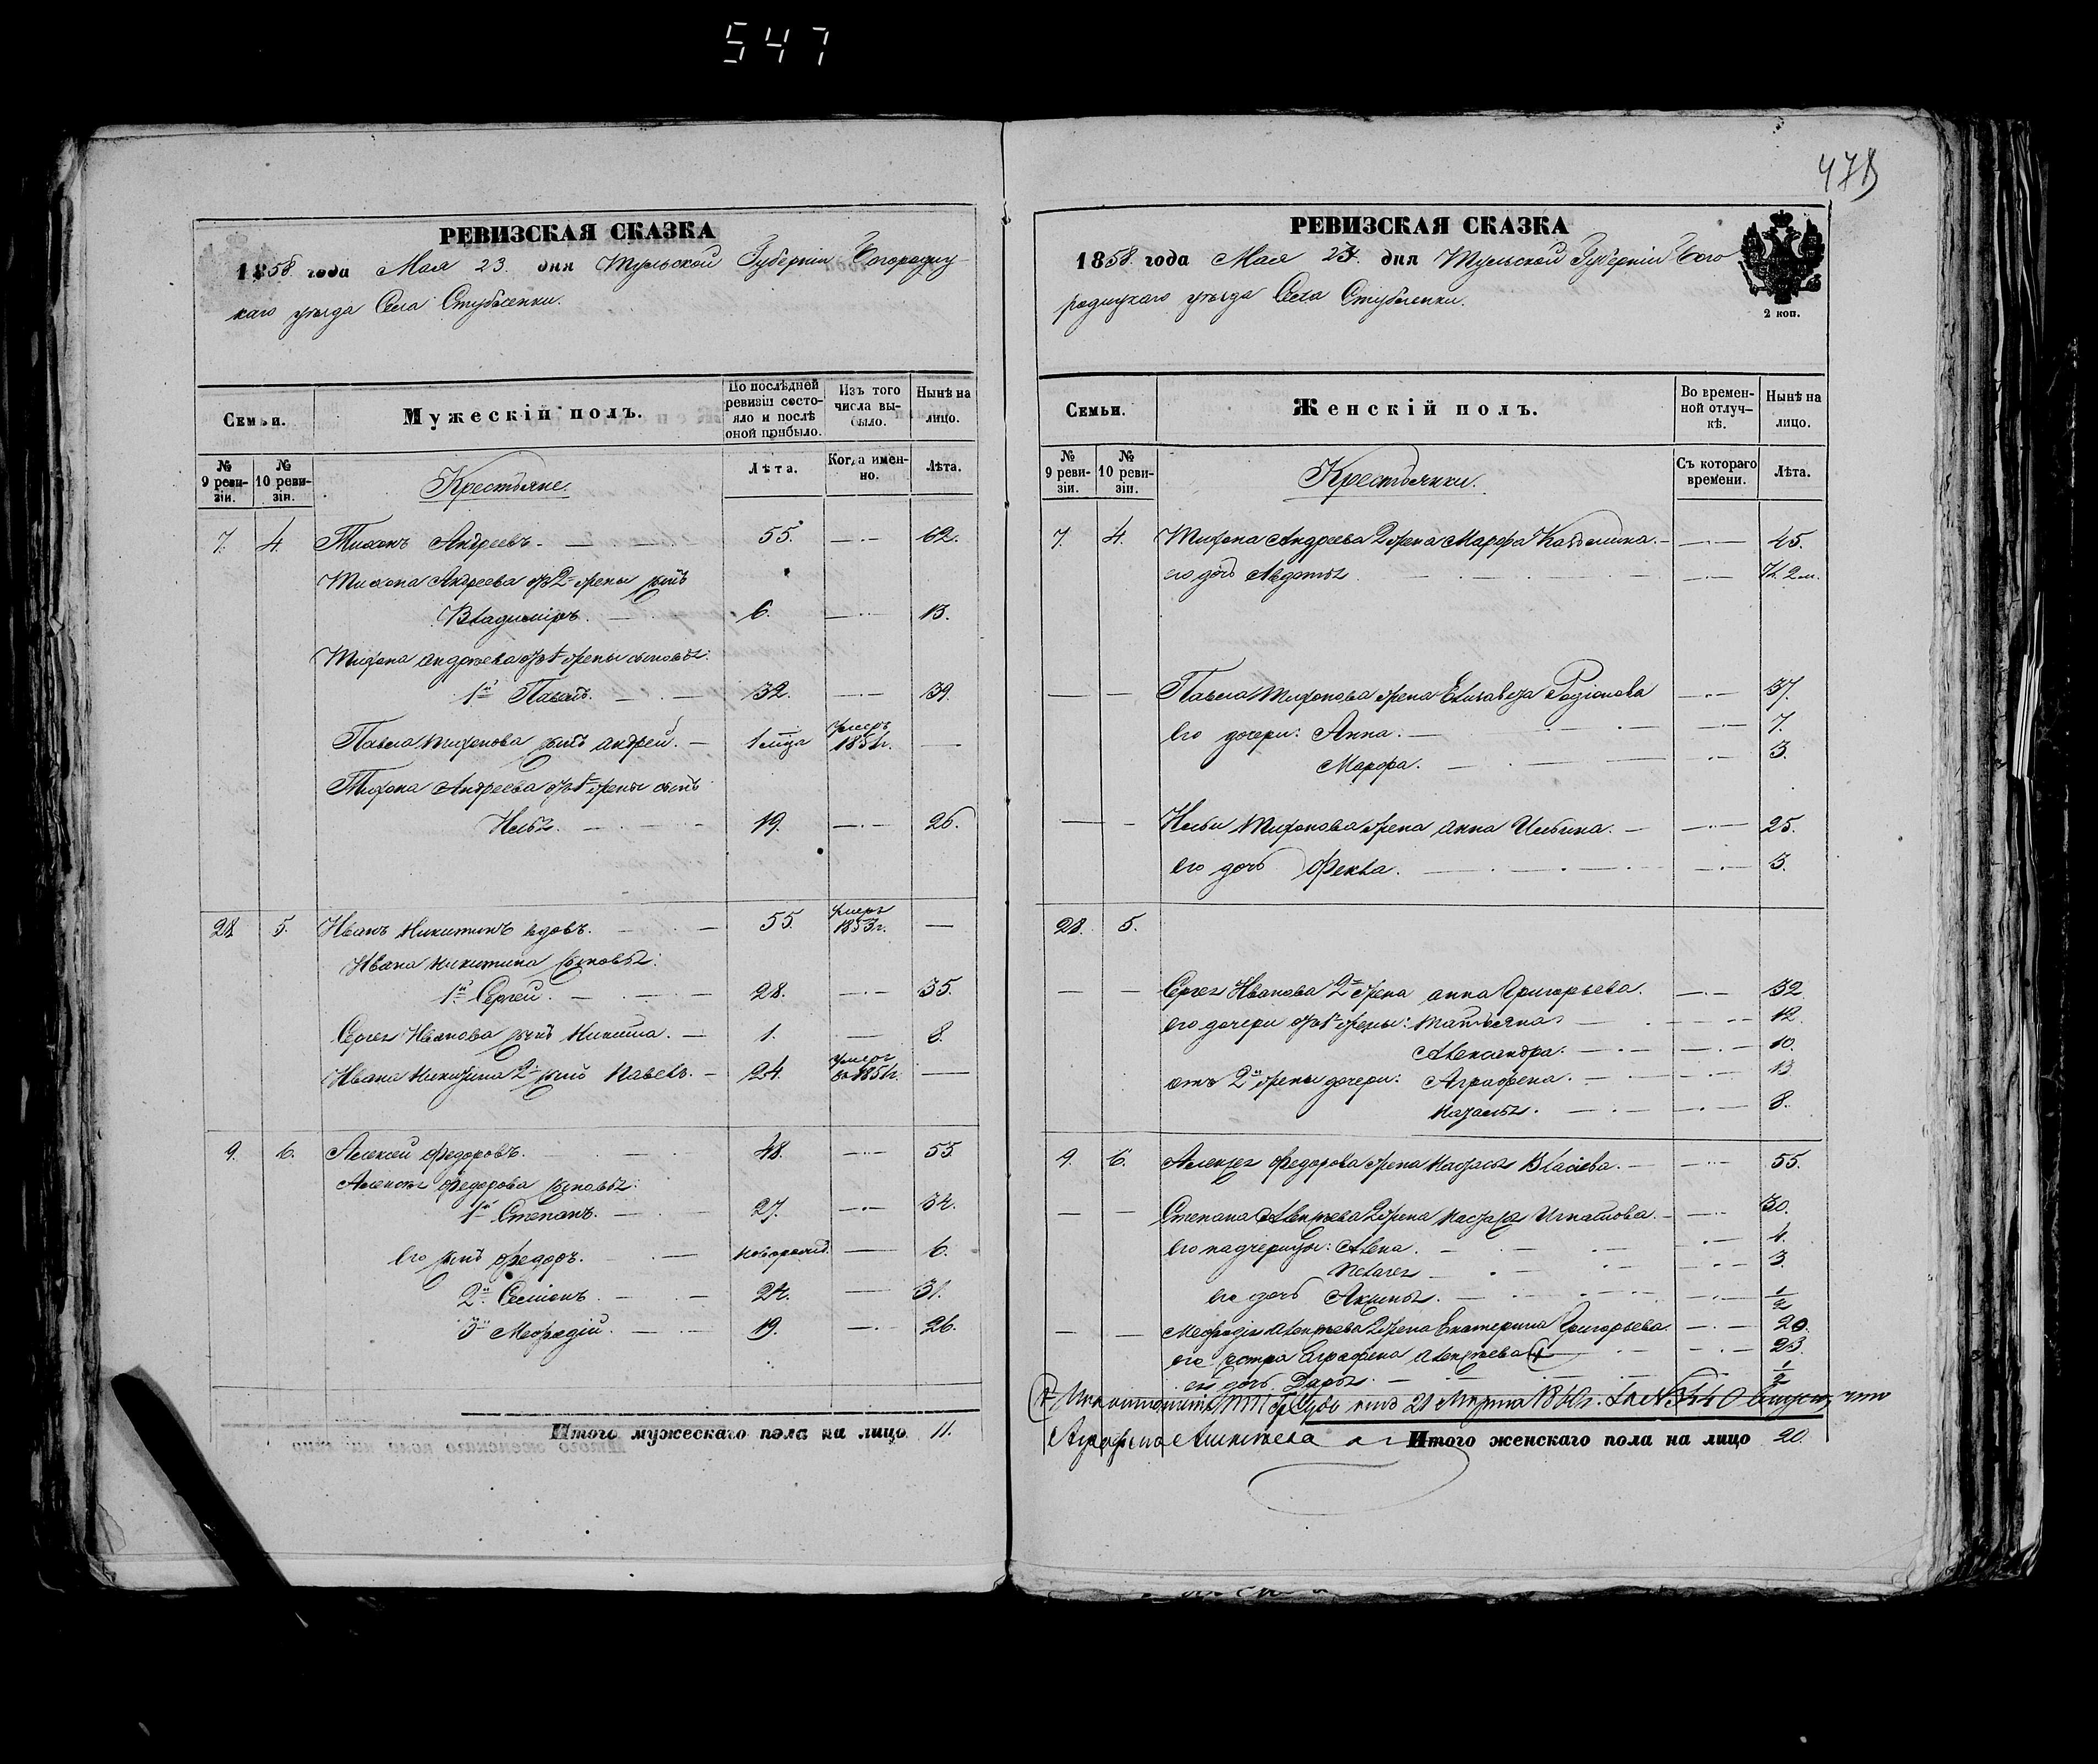 547
РЕВИЗСКАЯ СКАЗКА
1858 года Мая 23. дня Тульской Губерніи Богородиц-
каго уѣзда Села Стубленки.
Семьи.
Мужескій полъ.
По послѣдней ревизіи состояло и послѣ оной прибыло.
Изъ того числа выбыло.
Нынѣ на лицо.
№ 9 ревизіи.
№ 10 ревизіи.
Крестьяне.
Лѣта.
Когда именно.
Лѣта.
7. 4. Тихонъ Андреевъ. 55. 62.
Тихона Андреева отъ 2й жены сынъ
Владиміръ. 6. 13.
Тихона Андреева отъ 1 жены сыновья:
1й Павелъ. 32. 39.
Павла Тихонова сынъ Андрей. 1 мѣца умеръ 1851г.
Тихона Андреева отъ 1 жены сынъ
Илья. 19. 26.
28 5. Иванъ Никитинъ вдовъ. 55 умеръ 1853г.
Ивана Никитина сыновья:
1й Сергей. 28. 35.
Сергея Иванова сынъ Никита. 1. 8.
Ивана Никитина 2й сынъ Павелъ. 24. умеръ въ 1851г.
9. 6. Алексей Федоровъ. 48. 55
Алексея Федорова сыновья:
1й Степанъ. 27. 34.
Его сынъ Федоръ. новорожд. 6.
2й Семіонъ. 24. 31.
3й Мефодій. 19. 26.
Итого мужескаго пола на лицо 11.
РЕВИЗСКАЯ СКАЗКА
1858 года Мая 23. дня Тульской Губерніи Бого
родицкаго уѣзда Села Стубленки.
2 коп.
Семьи.
Женскій полъ.
Во временной отлучкѣ.
Нынѣ на лицо.
№ 9 ревизіи.
№ 10 ревизіи.
Крестьянки.
Съ котораго времени.
Лѣта.
7. 4. Тихона Андреева 2 жена Марфа 45.
его дочь Авдотья 2 м.
Павла Тихонова жена Елизавета Родіонова 37.
Его дочери: Анна. 7.
Марфа. 3.
Ильи Тихонова жена Анна Ильина. 25.
его дочь Фекла. 3.
28. 5.
Сергея Иванова 2я жена Анна Григорьева. 32
его дочери отъ 1 жены: Татьяна 12
Александра. 10.
отъ 2й жены дочери: Аграфена. 13
Наталья. 8.
9. 6. Алексея Федорова жена Наталья Власіева. 55.
Степана Алексеева 2 жена Настасья Игнатова. 30.
Его падчерицы: Алена. 4.
Пелагея 3.
его дочь Акулина. 1/2
Мефодія Алексеева 2 жена Екатерина Григорьева. 20.
его сестра Аграфена Алексеева 23.
ея дочь Дарья. 1/2
21 Марта
Аграфена Алексеева
Итого женскаго пола на лицо 20.